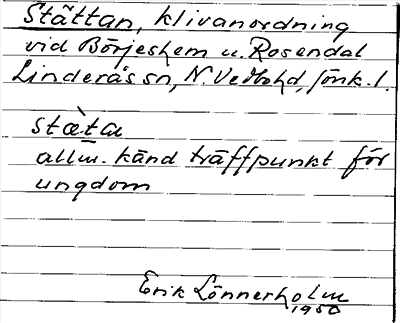 Stättan, klivanordning
vid Börjeshem u. Rosendal
Linderås sn, N. Vedbo hd, Jönk. l.
stæ̀ta
allm. känd träffpunkt för
ungdom
Erik Lönnerholm
1950